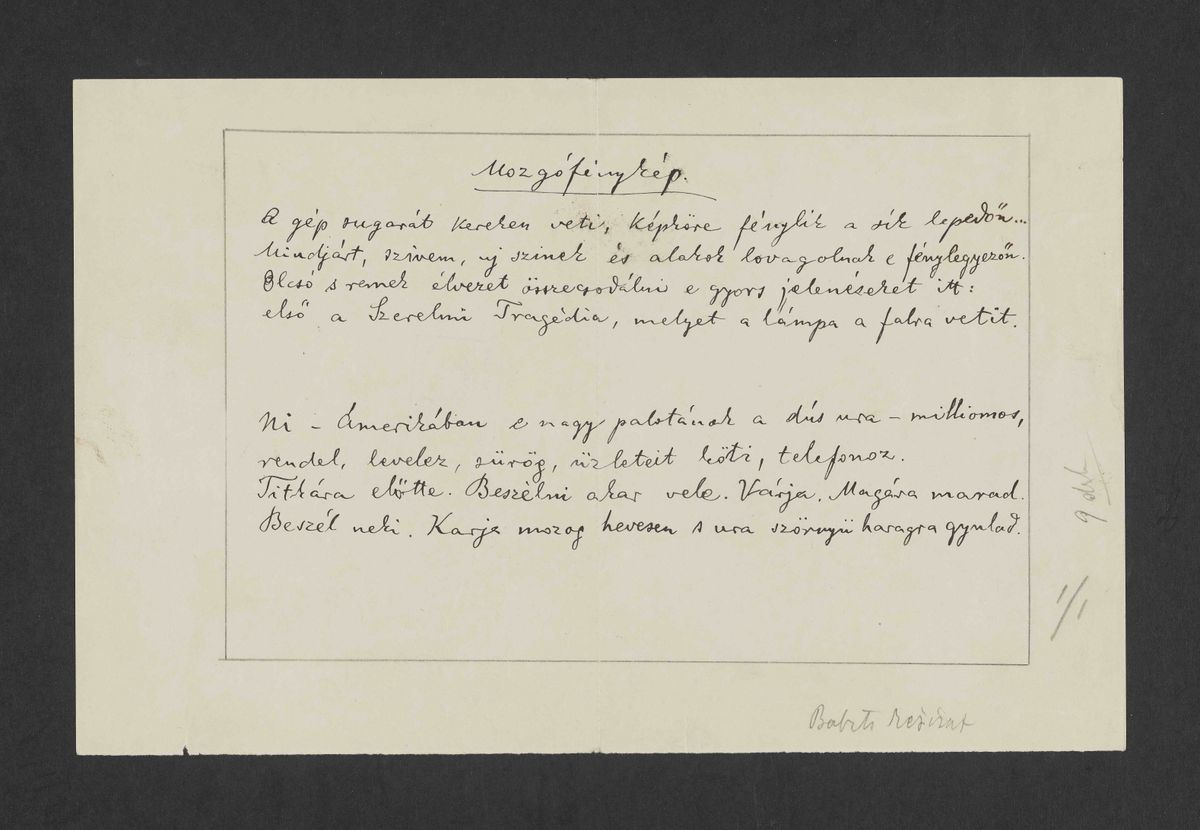 Mozgófénykép.
A gép sugarát kereken veti, képköre fénylik a sík lepedőn...
Mindjárt, szivem, uj szinek és alakok lovagolnak e fénylegyezőn.
Olcsó s remek élvezet összecsodálni e gyors jelenéseket itt:
első a Szerelmi Tragédia, melyet a lámpa a falra vetit.
Ni – Amerikában e nagy palotának a dús ura – milliomos,
rendel, levelez, sürög, üzleteit köti, telefonoz.
Titkára előtte. Beszélni akar vele. Várja. Magára marad.
Beszél neki. Karja mozog hevesen s ura szörnyü haragra gyulad.
9 drb
1/1
Babits kézirat